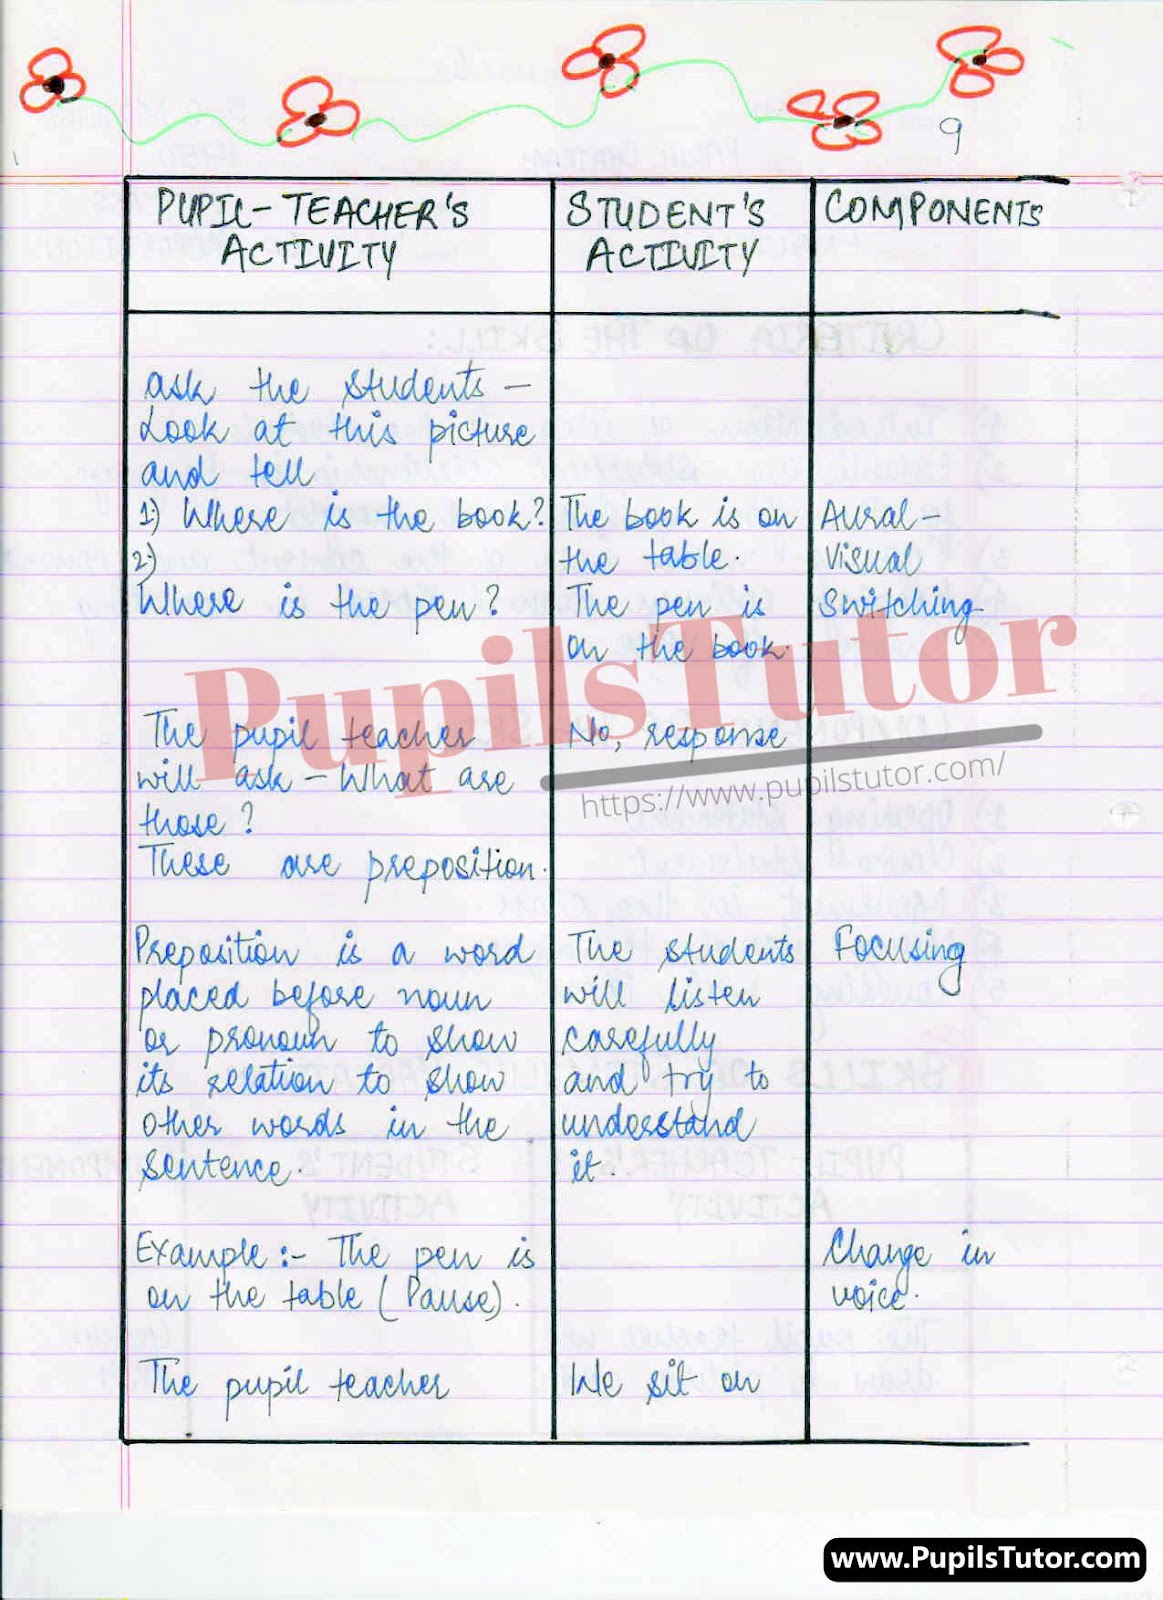 9
PUPIL-TEACHER'S
ACTIVITY
STUDENT'S
ACTIVITY
COMPONENTS
ask the students –
Look at this picture
and tell
1:) Where is the book?
2:)
Where is the pen?
The book is on
the table.
The pen is
on the book.
Aural–
Visual
Switching
The pupil teacher
will ask – What are
those?
These are preposition.
No, response
Preposition is a word
placed before noun
or pronoun to show
its relation to show
other words in the
sentence.
The students
will listen
carefully
and try to
understand
it.
Focusing
Example :- The pen is
on the table (Pause).
Change in
voice.
The pupil teacher
We sit on
PupilsTutor
https://www.pupilstutor.com/
www.PupilsTutor.com